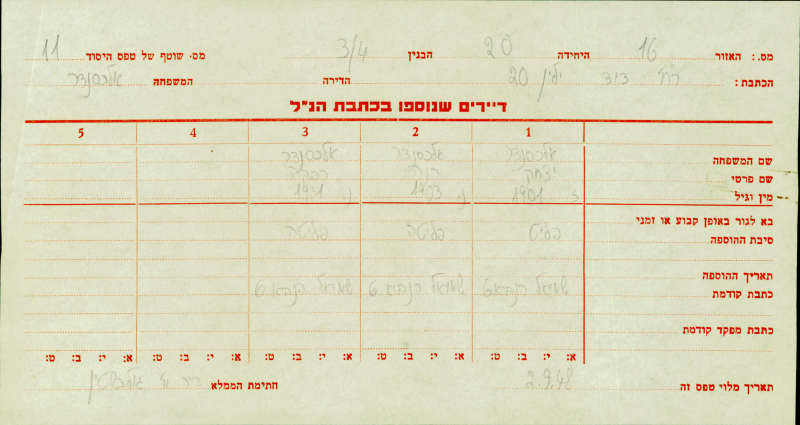 מס. : האזור 16 היחידה 20 הבנין 3/4 מס. שוטף של טפס היסוד 11
הכתבת : רח' דוד ילין 20 הדירה המשפחה אלכסנדר
דיירים שנוספו בכתבת הנ"ל
1 2 3 4 5
שם המשפחה אלכסנדר אלכסנדר אלכסנדר
שם פרטי יצחק רבקה
מין וגיל ז 1901 נ 1903 נ 1931
בא לגור באופן קבוע או זמני
סיבת ההוספה פליט פליטה פליטה
תאריך ההוספה
כתבת קודמת שמואל הנביא 6 שמואל הנביא 6 שמואל הנביא 6
כתבת מפקד קודמת
א: י: ב: ט: א: י: ב: ט: א: י: ב: ט: א: י: ב: ט: א: י: ב: ט:
תאריך מלוי טפס זה 2.9.48 חתימת הממלא